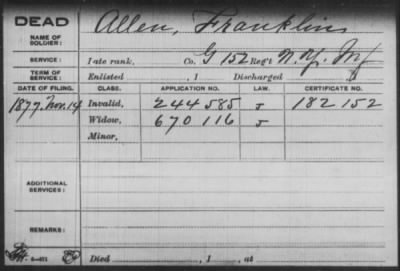 DEAD
NAME OF SOLDIER: Allen, Franklin
SERVICE: Late rank, Co. G 152 Reg't N.Y. Inf
TERM OF SERVICE: Enlisted , 1 Discharged , 1
DATE OF FILING. CLASS. APPLICATION NO. LAW. CERTIFICATE NO.
1877. Nov. 14 Invalid, 244585 J 182152
Widow, 670116 J
Minor,
ADDITIONAL SERVICES:
REMARKS:
Died , 1 , at